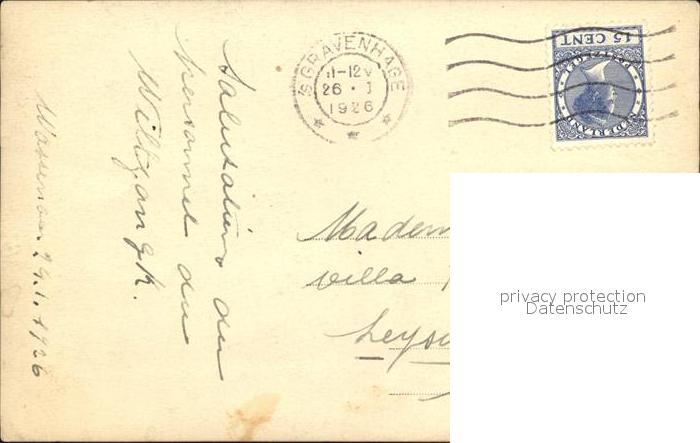 'SGRAVENHAGE
11-12V
26 · I
1926
15 CENT
NEDERLAND
Salutations du
personnel du
Wassenaar 24.1.1926
Madem
Villa
Leysi
privacy protection
Datenschutz